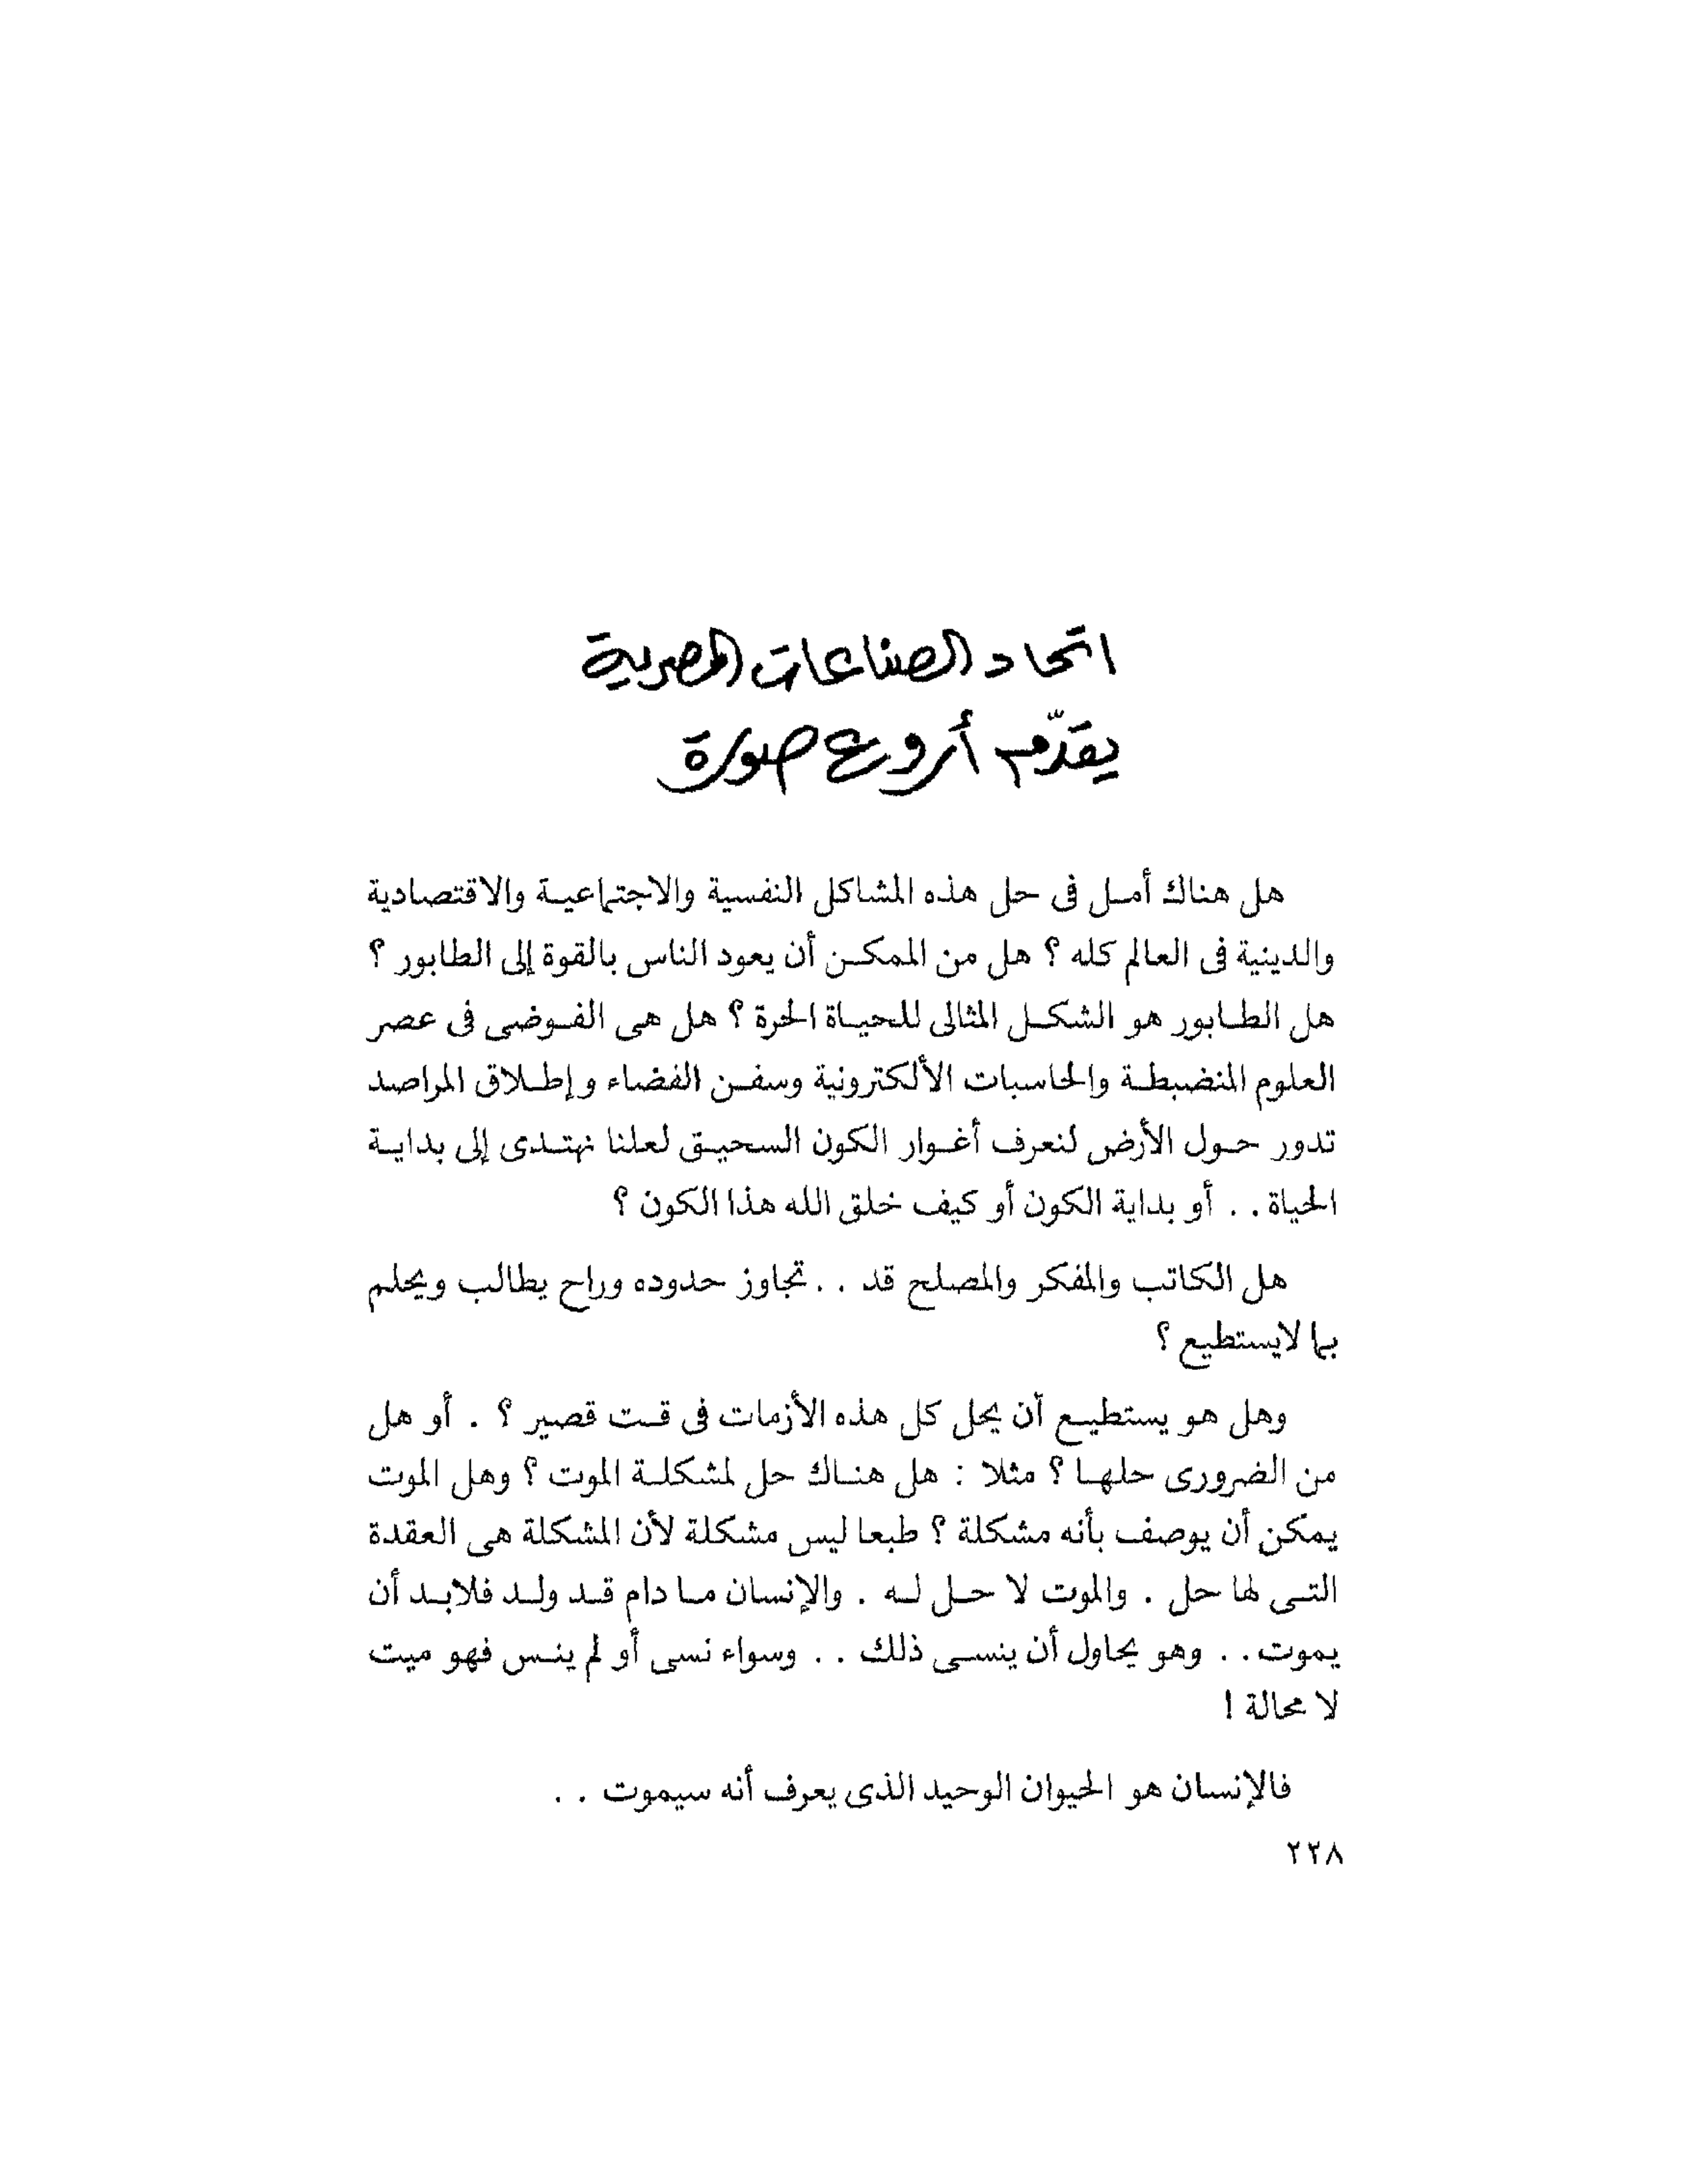 اتحاد الصناعات المصرية
يقدّم أروع صورة
هل هناك أمل فى حل هذه المشاكل النفسية والاجتماعية والاقتصادية
والدينية فى العالم كله ؟ هل من الممكن أن يعود الناس بالقوة إلى الطابور ؟
هل الطابور هو الشكل المثالى للحياة الحرة ؟ هل هى الفوضى فى عصر
العلوم المنضبطة والحاسبات الألكترونية وسفن الفضاء وإطلاق المراصد
تدور حول الأرض لنعرف أغوار الكون السحيق لعلنا نهتدى إلى بداية
الحياة . . أو بداية الكون أو كيف خلق الله هذا الكون ؟
هل الكاتب والمفكر والمصلح قد . . تجاوز حدوده وراح يطالب ويحلم
بما لايستطيع ؟
وهل هو يستطيع أن يحل كل هذه الأزمات فى قت قصير ؟ . أو هل
من الضرورى حلها ؟ مثلا : هل هناك حل لمشكلة الموت ؟ وهل الموت
يمكن أن يوصف بأنه مشكلة ؟ طبعا ليس مشكلة لأن المشكلة هى العقدة
التى لها حل . والموت لا حل له . والإنسان ما دام قد ولد فلابد أن
يموت . . وهو يحاول أن ينسى ذلك . . وسواء نسى أو لم ينس فهو ميت
لا محالة !
فالإنسان هو الحيوان الوحيد الذى يعرف أنه سيموت . .
٢٢٨